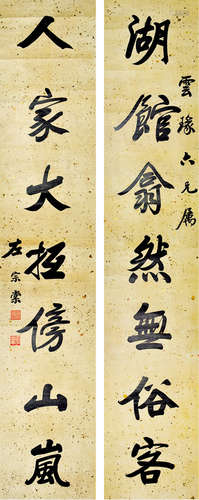 雲琢六兄屬
湖館翕然無俗客
人家大抵傍山嵐
左宗棠